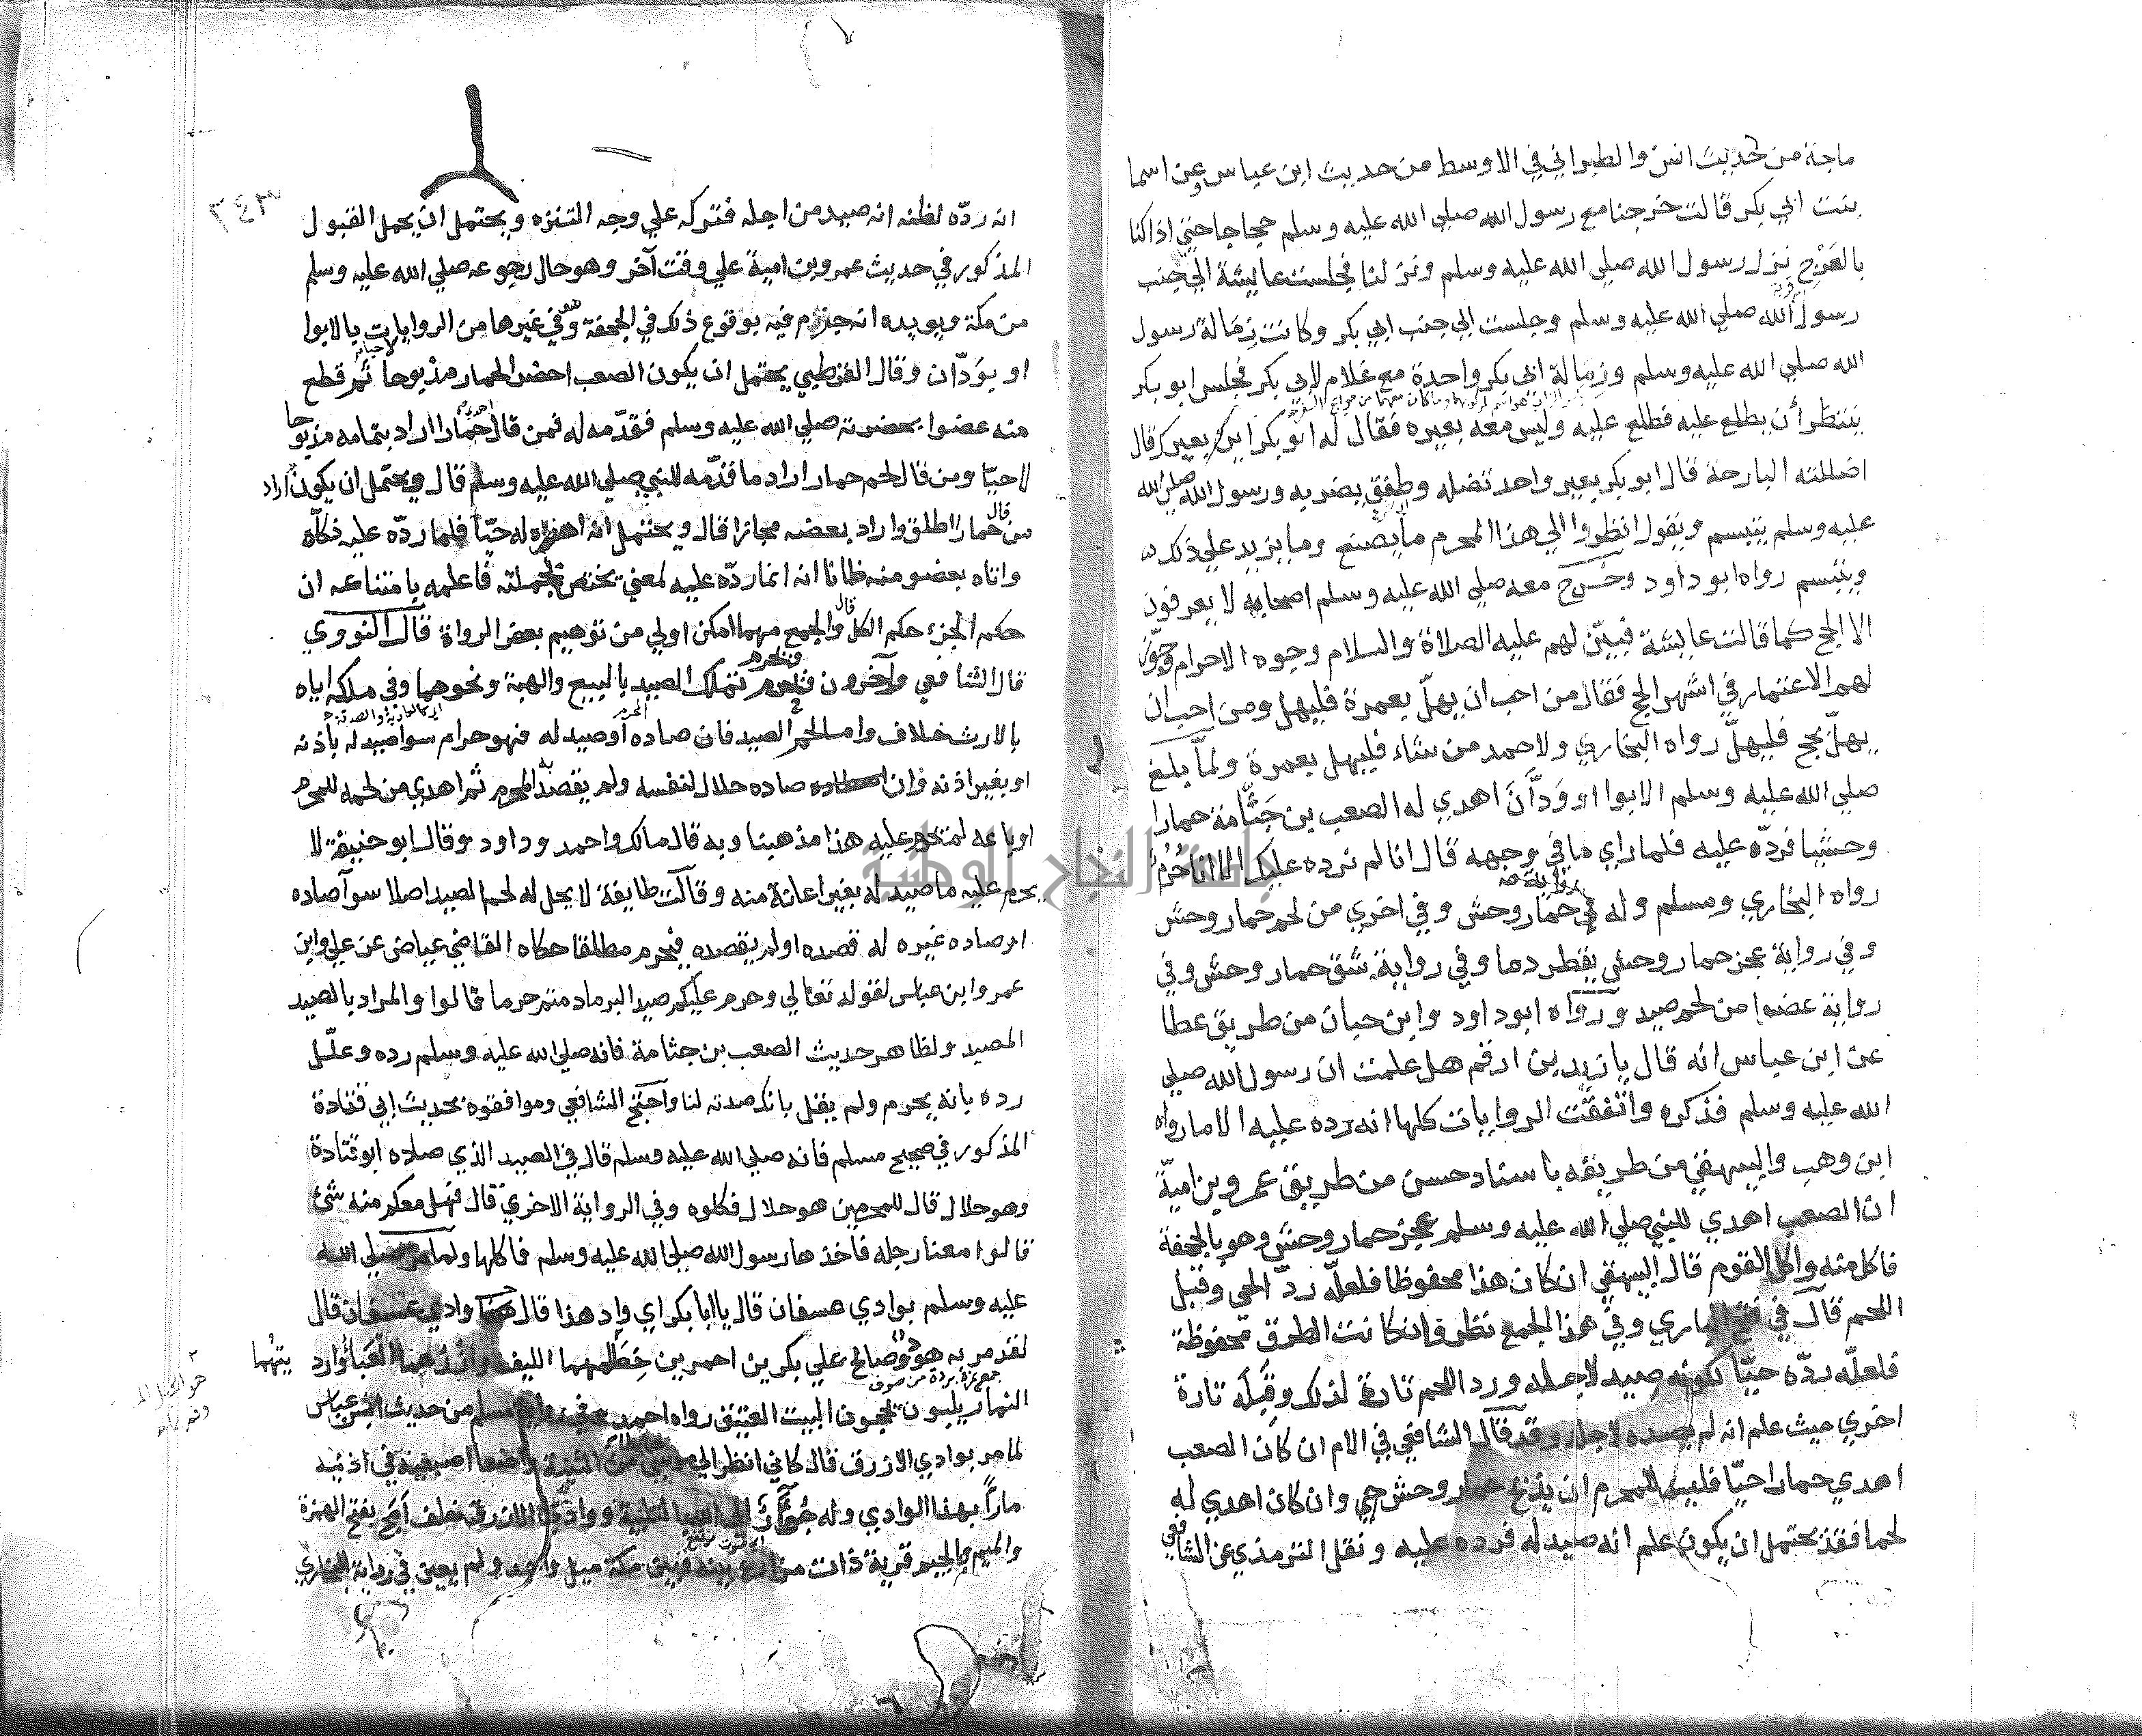 ماجة من حديث انس والطبراني في الاوسط من حديث ابن عباس وعن اسما
بنت ابي بكر قالت خرجنا مع رسول الله صلي الله عليه وسلم حجاجا حتي اذا كنا
بالعَرْج نزل رسول الله صلي الله عليه وسلم ونزلنا فجلست عايشة الي جنب
رسول الله صلي الله عليه وسلم وجلست الي جنب ابي بكر وكانت زِمَالة رسول
الله صلي الله عليه وسلم وزمالة ابي بكر واحدة مع غلام لابي بكر فجلس ابو بكر
ينتظر أن يطلع عليه فطلع عليه وليس معه بعيره فقال له ابو بكر اين بعيرك قال
اضللته البارحة قال ابو بكر بعير واحد تضله وطفق يضربه ورسول الله صلي الله
عليه وسلم يتبسم ويقول انظروا الي هذا المحرم ما يصنع وما يزيد علي ذلك
ويتبسم رواه ابو داود وخرج معه صلي الله عليه وسلم اصحابه لا يعرفون
الا الحج كما قالت عايشة فبيّن لهم عليه الصلاة والسلام وجوه الاحرام وجوّز
لهم الاعتمار في اشهر الحج فقال من احب ان يهلّ بعمرة فليهل ومن احب ان
يهلّ بحج فليهلّ رواه البخاري ولاحمد من شاء فليهل بعمرة ولمّا بلغ
صلي الله عليه وسلم الابوا او وَدَّانَ اهدي له الصعب بن جَثّامة حمارا
وحشيا فردّه عليه فلما راي ما في وجهه قال انا لم نرده عليك الا انا حُرُم
رواه البخاري ومسلم وله في رواية حمار وحش وفي اخري من لحم حمار وحش
وفي رواية عجز حمار وحش يقطر دما وفي رواية شق حمار وحش وفي
رواية عضوا من لحم صيد ورواه ابو داود وابن حبان من طريق عطا
عن ابن عباس انه قال يا زيد بن ارقم هل علمت ان رسول الله صلي
الله عليه وسلم فذكره واتفقت الروايات كلها انه رده عليه الا ما رواه
ابن وهب والبيهقي من طريقه باسناد حسن من طريق عمرو بن اميّة
ان الصعب اهدي للنبي صلي الله عليه وسلم عجز حمار وحش وهو بالجحفة
فاكل منه واكل القوم قال البيهقي ان كان هذا محفوظا فلعلّه ردّ الحي وقبل
اللحم قال في فتح الباري وفي هذا الجمع نظر فان كانت الطرق محفوظة
فلعلّه ردّه حيّا لكونه صيد لاجله ورد اللحم تارة لذلك وقَبِلَه تارة
اخري حيث علم انه لم يصده لاجله وقد قال الشافعي في الام ان كان الصعب
اهدي حمارا حيّا فليس للمحرم ان يذبح حمار وحش حي وان كان اهدي له
لحما فقد يحتمل ان يكون علم انه صيد له فرده عليه ونقل الترمذي عن الشافعي
انه ردّه لظنه انه صيد من اجله فتركه علي وجه التنزه ويحتمل ان يحمل القبول
المذكور في حديث عمرو بن امية علي وقت آخر وهو حال رجوعه صلي الله عليه وسلم
من مكة ويويده انه جزم فيه بوقوع ذلك في الجحفة وفي غيرها من الروايات بالابوا
او بوَدّان وقال القرطبي يحتمل ان يكون الصعب احضر الحمار مذبوحا ثم قطع
منه عضوا بحضرته صلي الله عليه وسلم فقدّمه له فمن قال حمارا اراد بتمامه مذبوحا
لا حيّا ومن قال لحم حمار اراد ما قدّمه للنبي صلي الله عليه وسلم قال ويحتمل ان يكون اراد
من قال حمارا اطلق واراد بعضه مجازا قال ويحتمل انه اهداه له حيّا فلما ردّه عليه ذكّاه
واتاه بعضو منه ظانا انه انما ردّه عليه لمعني يختص بجملته فاعلمه بامتناعه ان
حكم الجزء حكم الكل قال والجمع مهما امكن اولي من توهيم بعض الرواة قال النووي
قال الشافعي وآخرون ويحرم تملك الصيد بالبيع والهبة ونحوهما وفي ملكه اياه
بالارث خلاف واما لحم الصيد فان صاده المحرم او صيد له فهو حرام سوا صيد له باذنه
او بغير اذنه وان صاده حلال لنفسه ولم يقصد به المحرم ثم اهدي من لحمه للمحرم
او باعه لم يحرم عليه هذا مذهبنا وبه قال مالك واحمد وداود وقال ابو حنيفة لا
يحرم عليه ما صيد له بغير اعانة منه وقالت طايفة لا يحل له لحم الصيد اصلا سوآ صاده
او صاده غيره له قصده او لم يقصده فيحرم مطلقا حكاه القاضي عياض عن علي وابن
عمر وابن عباس لقوله تعالي وحرم عليكم صيد البر ما دمتم حرما قالوا والمراد بالصيد
المصيد ولظاهر حديث الصعب بن جثامة فانه صلي الله عليه وسلم رده وعلّل
رده بانه يحرم ولم يقل بانك صدته لنا واحتج الشافعي وموافقوه بحديث ابي قتادة
المذكور في صحيح مسلم فانه صلي الله عليه وسلم قال في الصيد الذي صاده ابو قتادة
وهو حلال قال للمحرمين هو حلال فكلوه وفي الرواية الاخري قال فهل معكم منه شئ
قالوا معنا رجله فاخذها رسول الله صلي الله عليه وسلم فاكلها ولما مر صلي الله
عليه وسلم بوادي عسفان قال يا ابا بكر اي واد هذا قال وادي عسفان قال
لقد مر به هود وصالح علي بكرين احمرين خطمهما الليف وازرهما العبا وارديتهما
النمار يلبون يحجون البيت العتيق رواه احمد وفي رواية مسلم من حديث ابن عباس
لما مر بوادي الازرق قال كاني انظر الي موسي من الثنية واضعا اصبعيه في اذنيه
مارّا بهذا الوادي وله جُؤَار الي الله بالتلبية ووادي الازرق خلف اَمَج بفتح الهمزة
والميم وبالجيم قرية ذات مزارع بينه وبين مكة ميل واحد ولم يعين في رواية البخاري
جامعة النجاح الوطنية